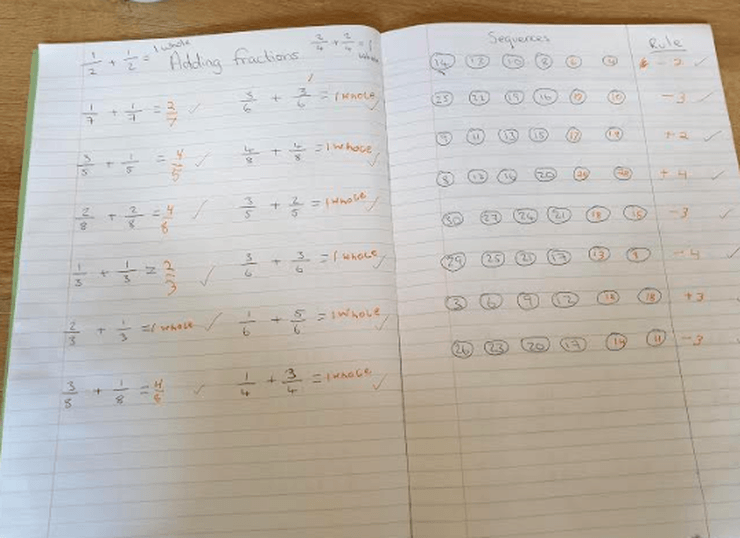 1/2 + 1/2 = 1 whole
Adding fractions
2/4 + 2/4 = 1 whole
1/7 + 1/7 = 2/7 ✓
3/6 + 3/6 = 1 whole
3/5 + 1/5 = 4/5 ✓
4/8 + 4/8 = 1 whole ✓
2/8 + 2/8 = 4/8 ✓
3/5 + 2/5 = 1 whole ✓
1/3 + 1/3 = 2/3 ✓
3/6 + 3/6 = 1 whole ✓
2/3 + 1/3 = 1 whole ✓
1/6 + 5/6 = 1 whole ✓
3/8 + 1/8 = 4/8 ✓
1/4 + 3/4 = 1 whole ✓
Sequences Rule
14 12 10 8 6 4 - 2 ✓
25 22 19 16 13 10 - 3 ✓
9 11 13 15 17 19 + 2 ✓
8 12 16 20 24 28 + 4 ✓
30 27 24 21 18 15 - 3 ✓
29 25 21 17 13 9 - 4 ✓
3 6 9 12 15 18 + 3
26 23 20 17 14 11 - 3